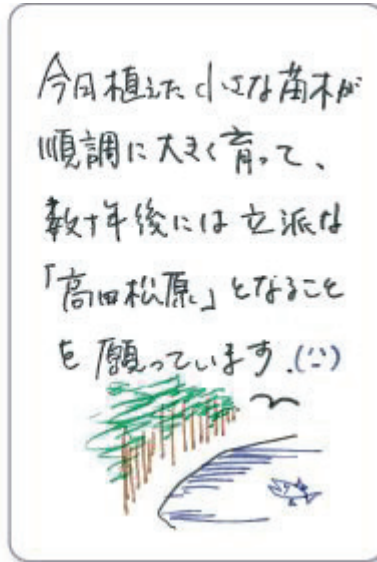 今日植えた小さな苗木が
順調に大きく育って、
数十年後には立派な
「高田松原」となること
を願っています.(¨)